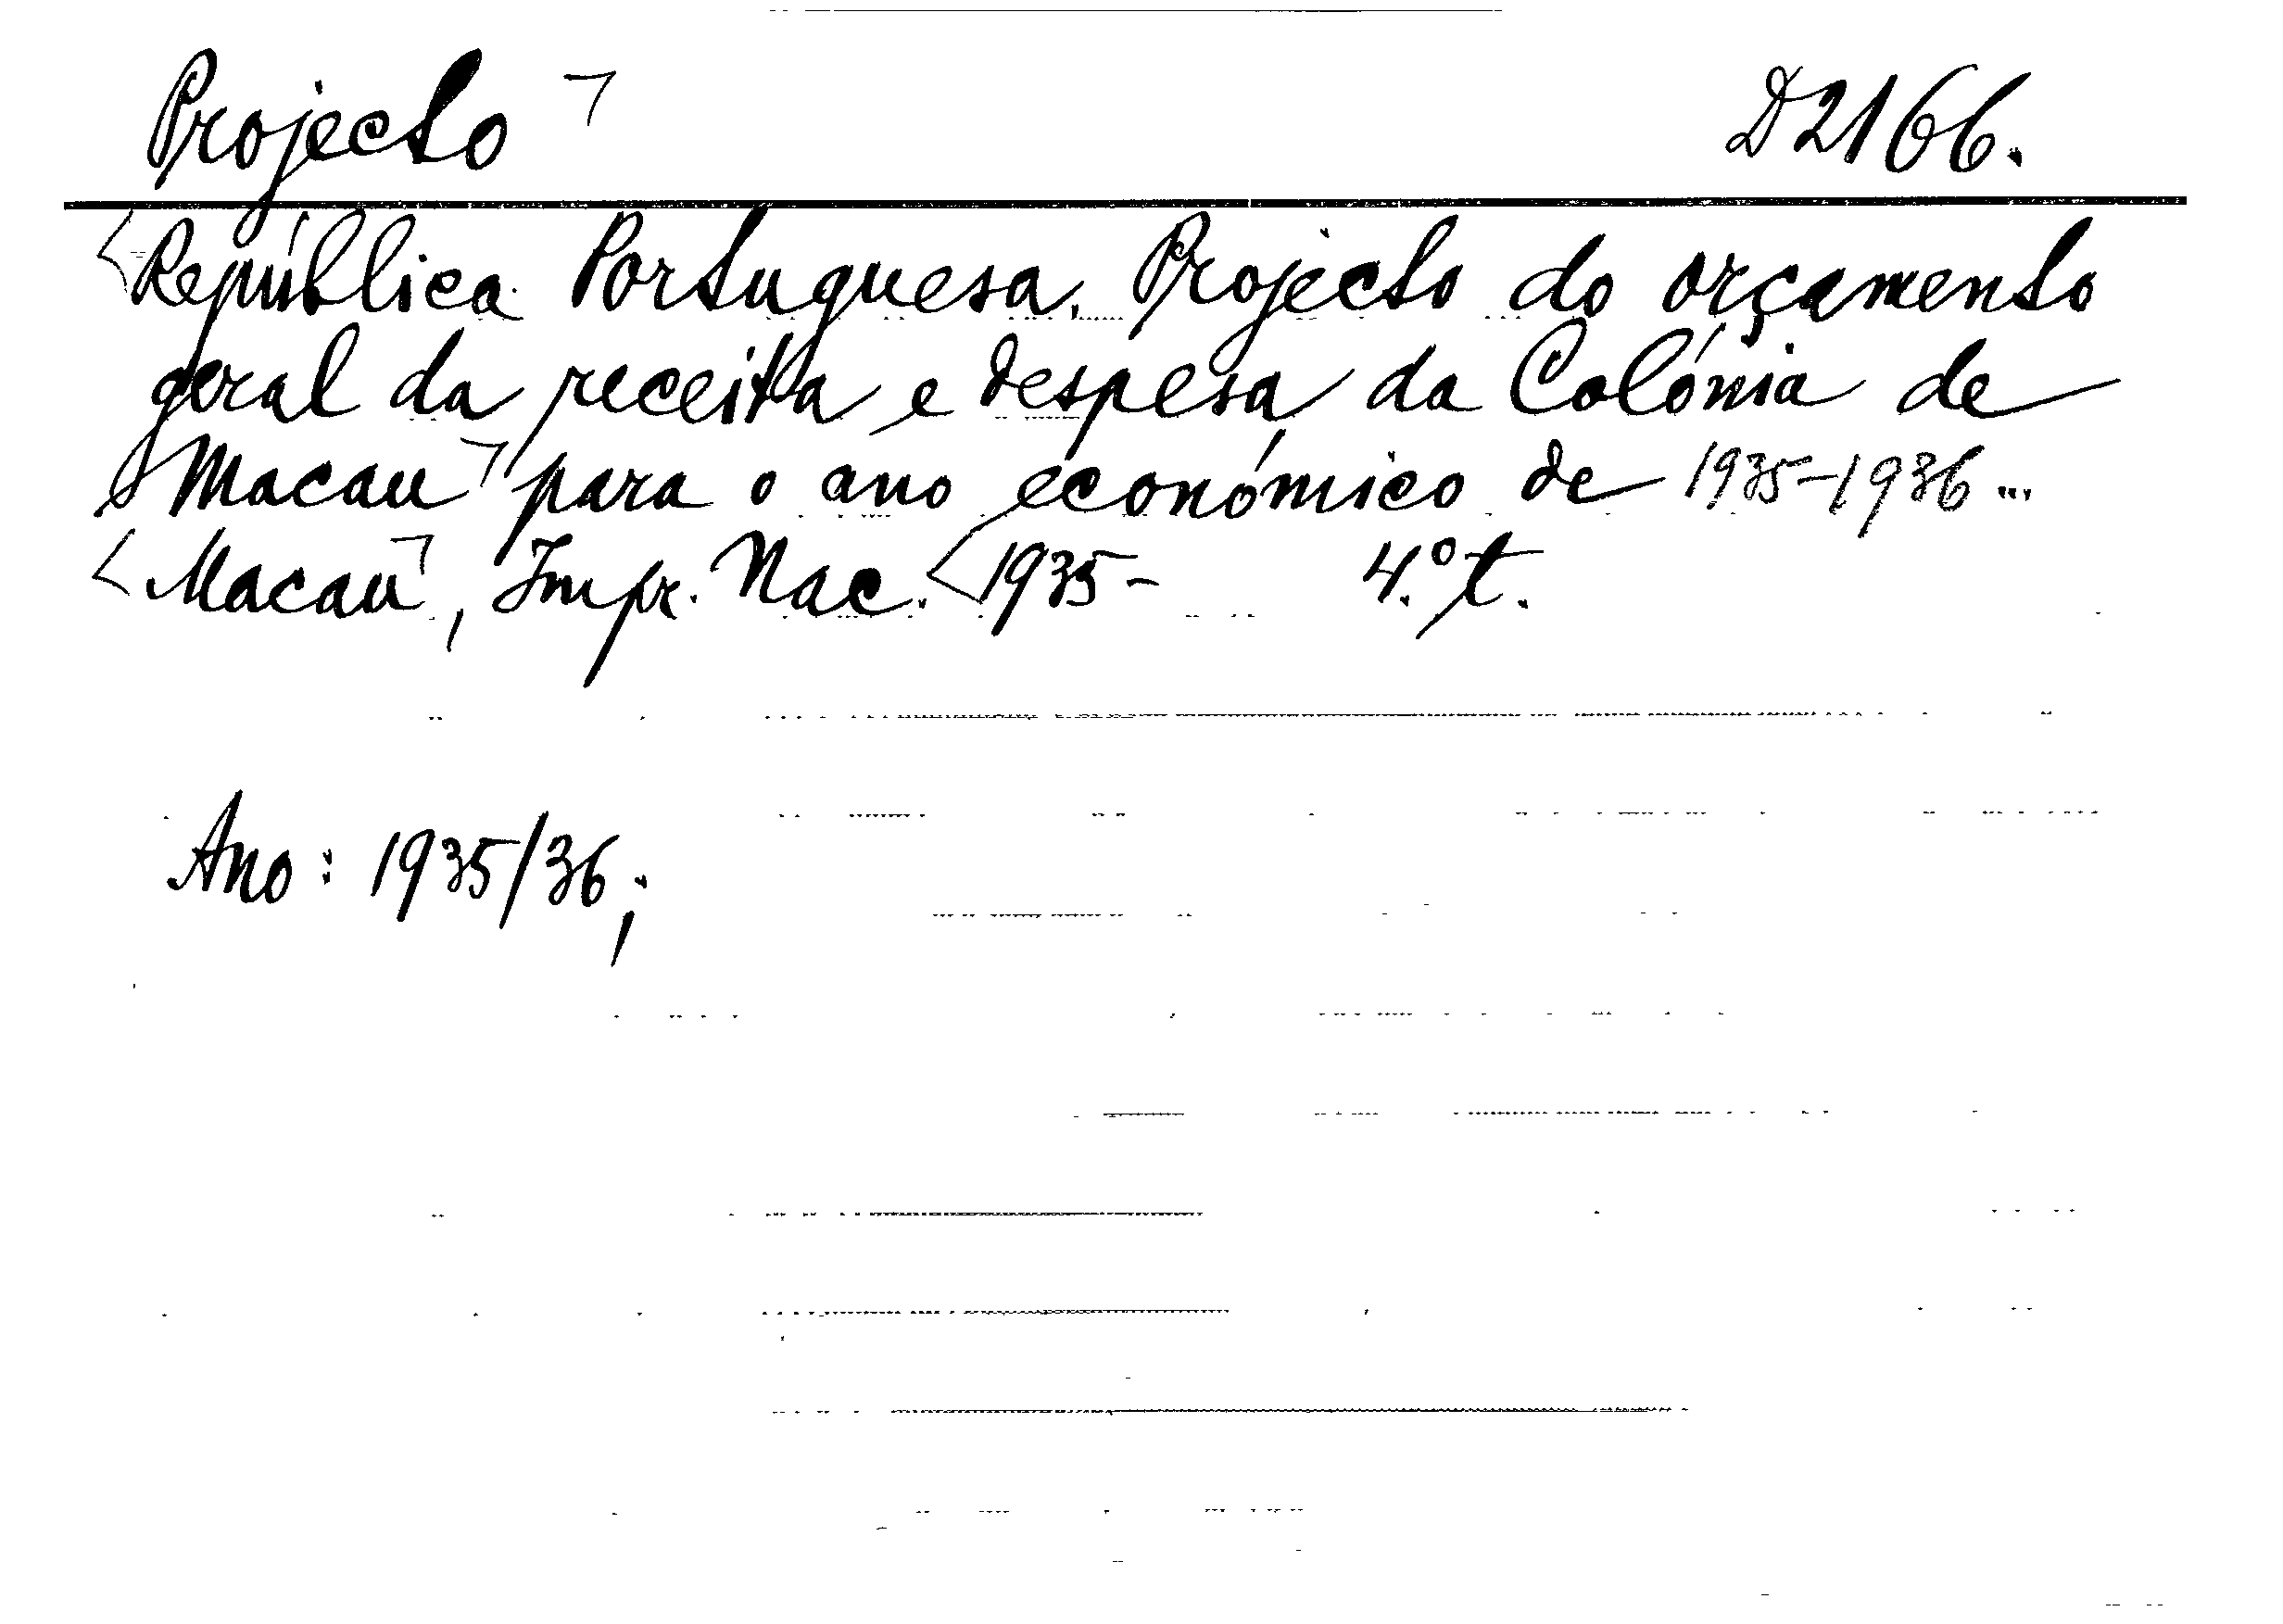 Projecto ¬ D2166.
<República Portuguesa. Projecto do orçamento
geral da receita e despesa da Colónia de
Macau ¬ para o ano económico de 1935-1936...
<Macau ¬, Impr. Nac. <1935- 4.º t.
Ano: 1935/36;